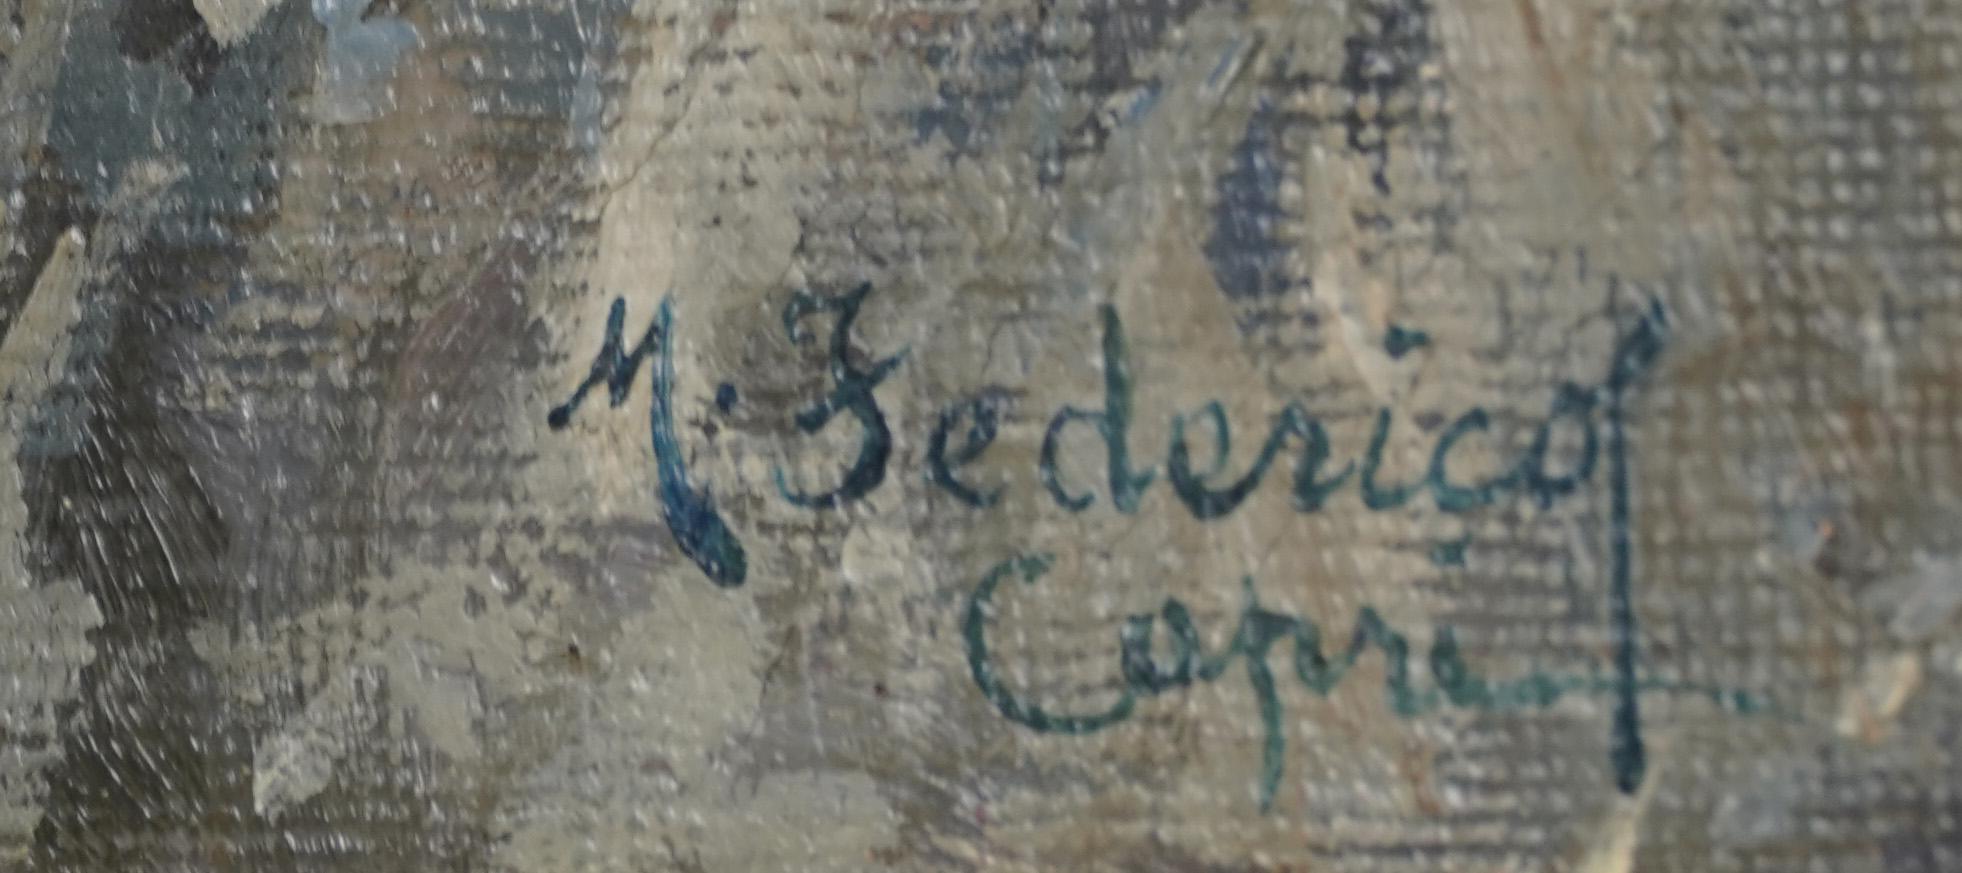 M. Federico
Capri